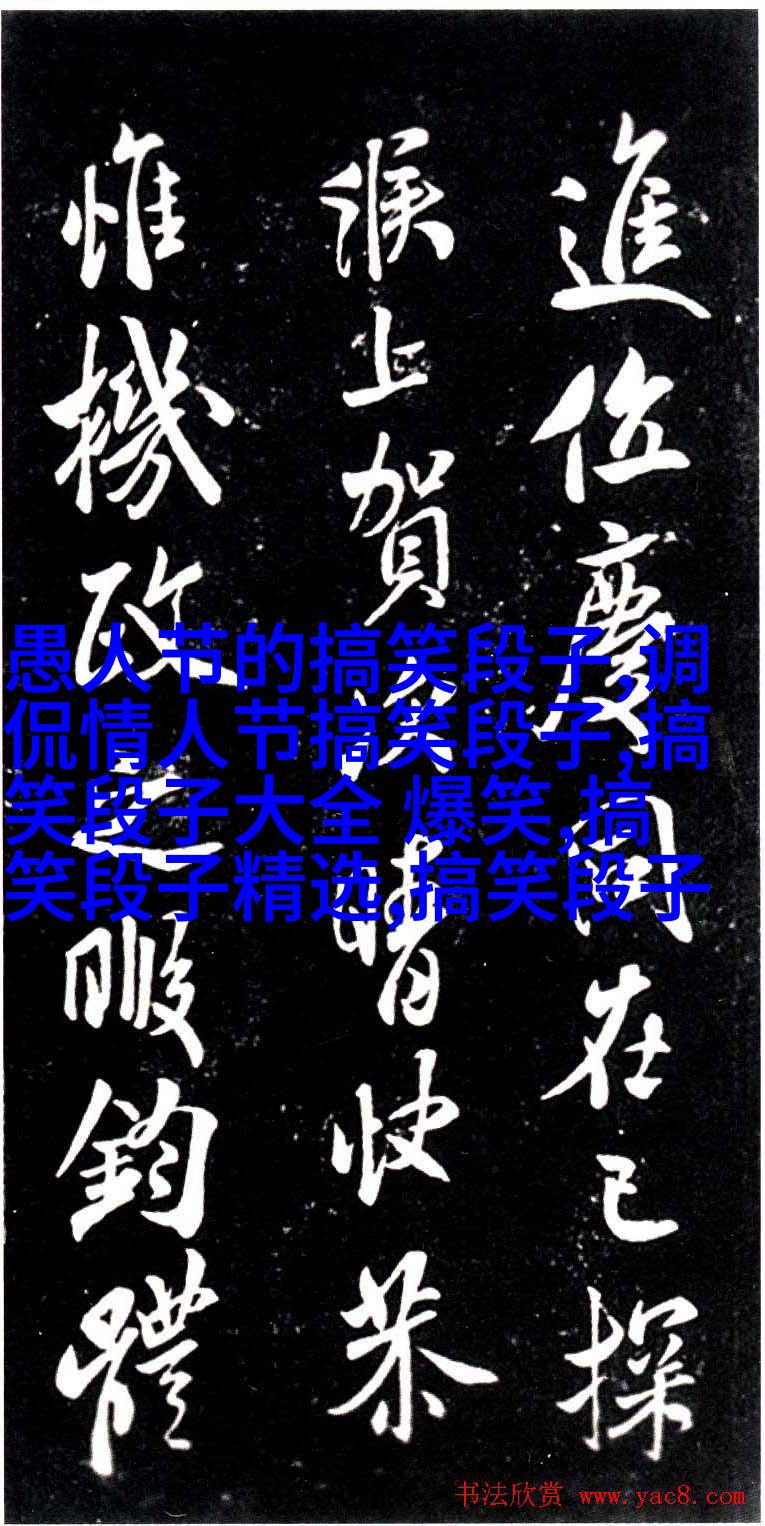 進位慶同在已探
候上賀次晴快恭
惟機政之暇鈞體
愚人节的搞笑段子,调
侃情人节搞笑段子,搞
笑段子大全 爆笑,搞
笑段子精选,搞笑段子
书法欣赏 www.yac8.com